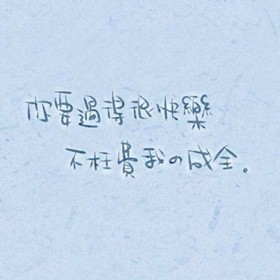 你要過得很快樂
不枉費我の成全。